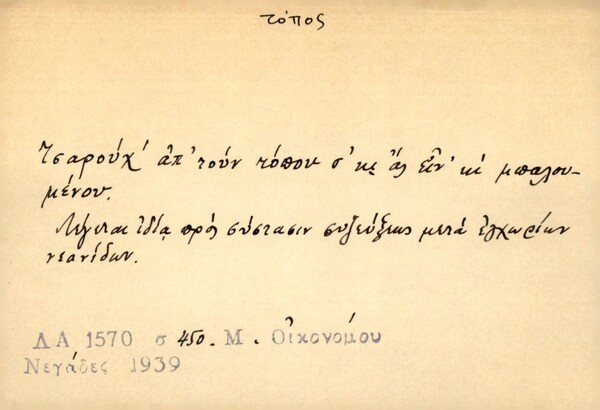 τόπος
Τσαρούχ' ἀπ' τοὺν τόπου σ' κι ἂς εἶν' κὶ μπαλου-
μένου.
Λέγεται ἰδίᾳ πρὸς σύστασιν συζεύξεως μετὰ ἐγχωρίων
νεανίδων.
ΛΑ 1570 σ 450. Μ. Οἰκονόμου
Νεγάδες 1939